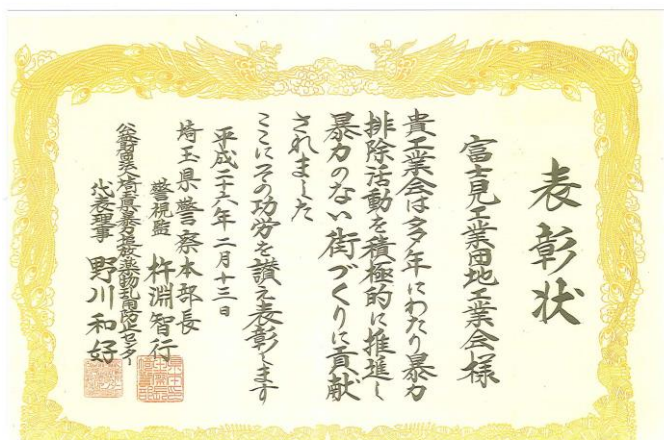 表彰状
富士見工業団地工業会様
貴工業会は多年にわたり暴力
排除活動を積極的に推進し
暴力のない街づくりに貢献
されました
ここにその功労を讃え表彰します
平成二十六年二月十三日
埼玉県警察本部長
警視監 杵淵智行
公益財団法人埼玉県暴力追放・薬物乱用防止センター
代表理事 野川和好